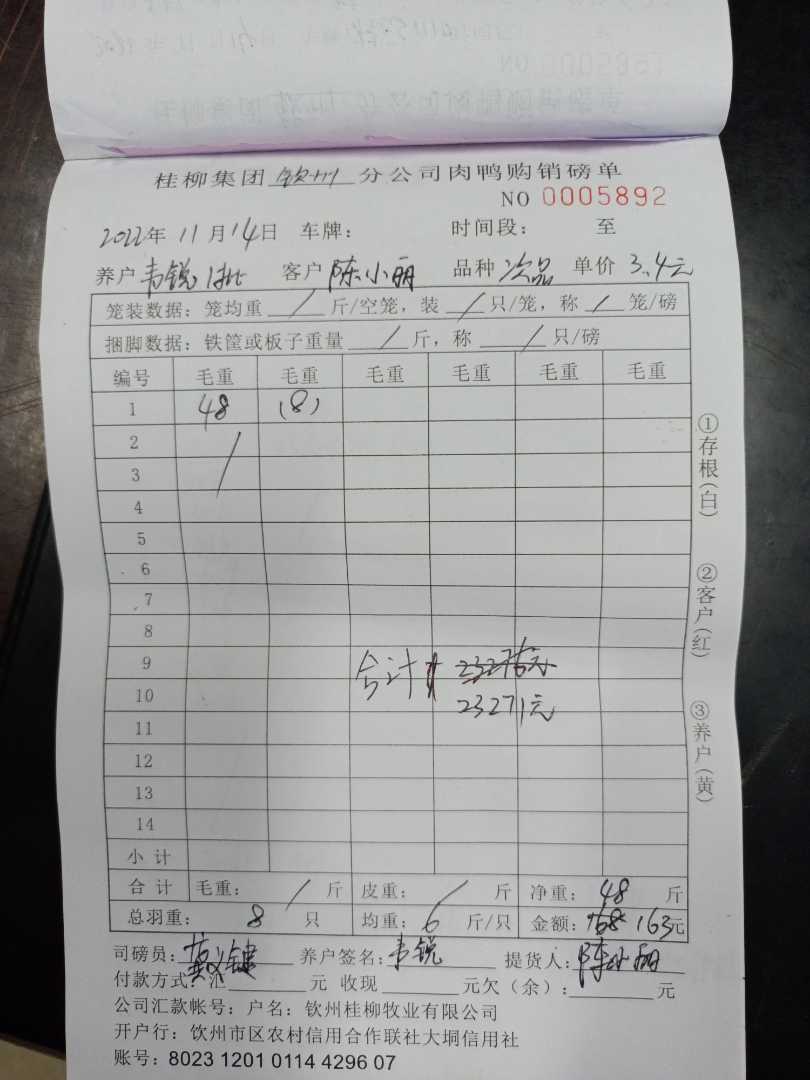 桂柳集团 钦州 分公司肉鸭购销磅单
NO 0005892
2022年 11月14日 车牌: 时间段: 至
养户 韦锐1批 客户 陈小丽 品种 次品 单价 3.4元
笼装数据: 笼均重 / 斤/空笼, 装 / 只/笼, 称 / 笼/磅
捆脚数据: 铁筐或板子重量 / 斤, 称 / 只/磅
编号 毛重 毛重 毛重 毛重 毛重 毛重
1 48 (8)
2 /
3
4
5
6
7
8
9 合计 23276元
10 23271元
11
12
13
14
小 计
合 计 毛重: / 斤 皮重: / 斤 净重: 48 斤
总羽重: 8 只 均重: 6 斤/只 金额: 168 163元
司磅员: 养户签名: 韦锐 提货人: 陈小丽
付款方式: 汇 元 收现 元欠(余): 元
公司汇款帐号: 户名: 钦州桂柳牧业有限公司
开户行: 钦州市区农村信用合作联社大垌信用社
账号: 8023 1201 0114 4296 07
①存根(白)
②客户(红)
③养户(黄)